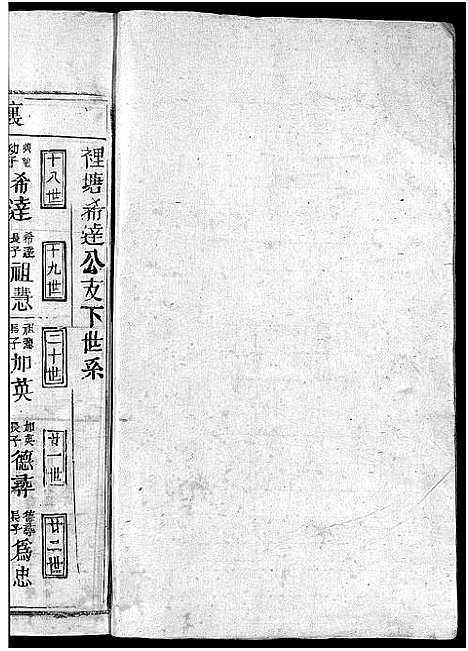 裡塘希達公支下世系
十八世
十九世
二十世
廿一世
廿二世
幼子希達
希達長子祖慧
祖慧長子加英
加英長子德彞
德彞長子為忠